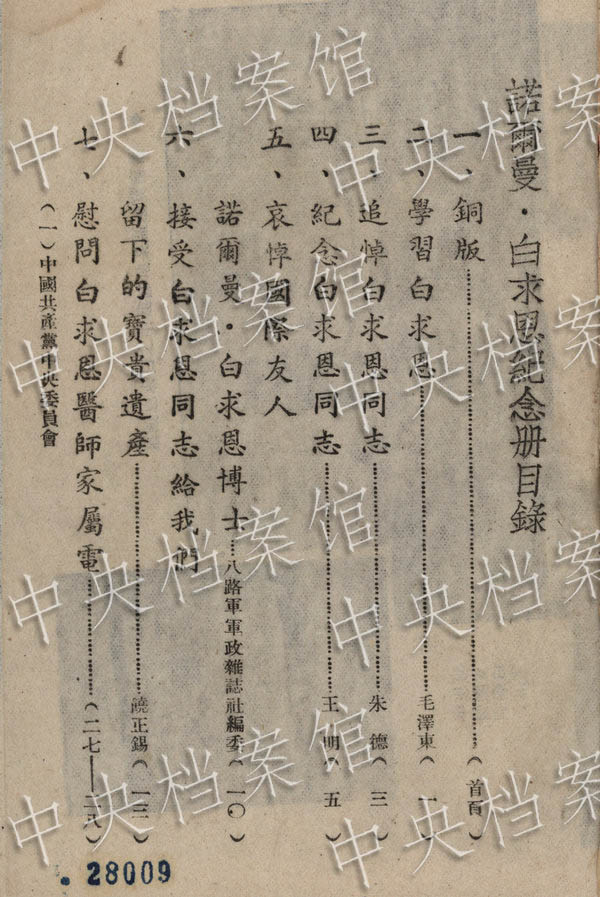 諾爾曼・白求恩紀念册目錄
一、銅版……（首頁）
二、學習白求恩……毛澤東（一）
三、追悼白求恩同志……朱德（三）
四、紀念白求恩同志……王明（五）
五、哀悼國際友人
諾爾曼・白求恩博士……八路軍軍政雜誌社編委（一〇）
六、接受白求恩同志給我們
留下的寶貴遺產……饒正錫（一三）
七、慰問白求恩醫師家屬電……（二七——二八）
（一）中國共產黨中央委員會
28009
中央档案馆
中央档案馆
中央档案馆
中央档案馆
中央档案
中央档案
中央档案
中央档案